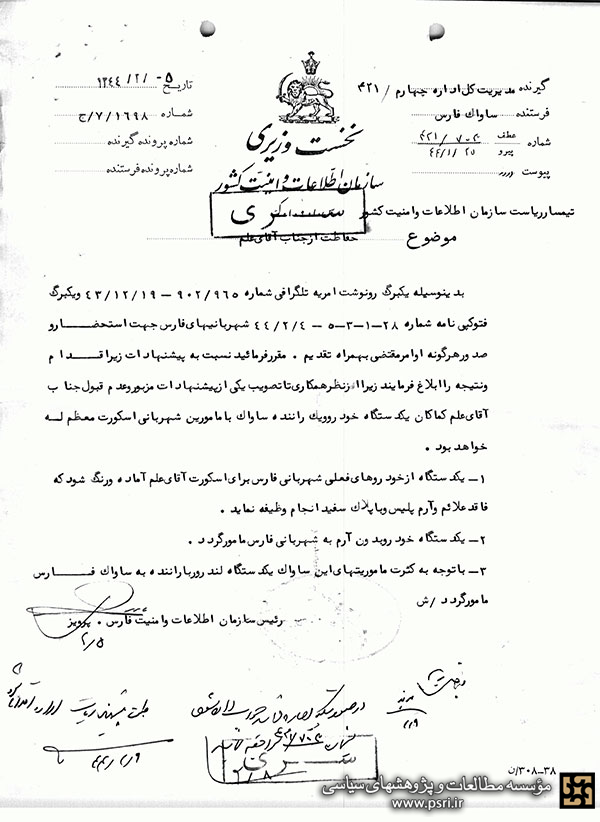 گیرنده مدیریت کل اداره چهارم / ۴۲۱
فرستنده ساواك فارس
شماره عطف پیرو ۴۲۱/۷۰۳۰ ۴۴/۱/۲۵
پیوست
نخست وزیری
سازمان اطلاعات و امنیت کشور
تاریخ ۱۳۴۴/۲/۰۵
شماره ۷/۱۶۹۸/ج
شماره پرونده گیرنده
شماره پرونده فرستنده
تیمسار ریاست سازمان اطلاعات و امنیت کشور
سری
موضوع حفاظت از جناب آقای علم
بدینوسیله یکبرگ رونوشت امریه تلگرافی شماره ۹۰۲/۹۶۵ – ۴۳/۱۲/۱۹ ویکبرگ
فتوکپی نامه شماره ۲۸–۱–۳–۵ – ۴۴/۲/۴ شهربانیهای فارس جهت استحضار و
صدور هرگونه اوامر مقتضی بهمراه تقدیم . مقرر فرمائید نسبت به پیشنهادات زیر اقدام
ونتیجه را ابلاغ فرمایند زیرا از نظر همکاری تا تصویب یکی از پیشنهادات مزبور وعدم قبول جناب
آقای علم کماکان یکدستگاه خودرو ویك راننده ساواك با مامورین شهربانی اسکورت معظم له
خواهد بود .
۱– یکدستگاه از خودروهای فعلی شهربانی فارس برای اسکورت آقای علم آماده ورنگ شود که
فاقد علائم وآرم پلیس وبا پلاك سفید انجام وظیفه نماید .
۲– یکدستگاه خودرو بدون آرم به شهربانی فارس مامور گردد .
۳– با توجه به کثرت ماموریتهای این ساواك یکدستگاه لندرور با راننده به ساواك فارس
مامور گردد /ش
رئیس سازمان اطلاعات و امنیت فارس . پرویز
۲/۵
۲/۹
۴۴/۲/۹
سری
۳۰۸–۳۸/ن
مؤسسه مطالعات و پژوهشهای سیاسی
www.psri.ir